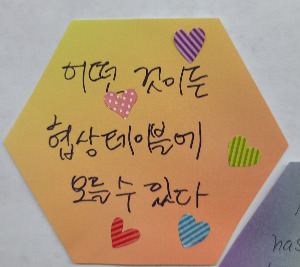 어떤 것이든
협상테이블에
오를 수 있다
has